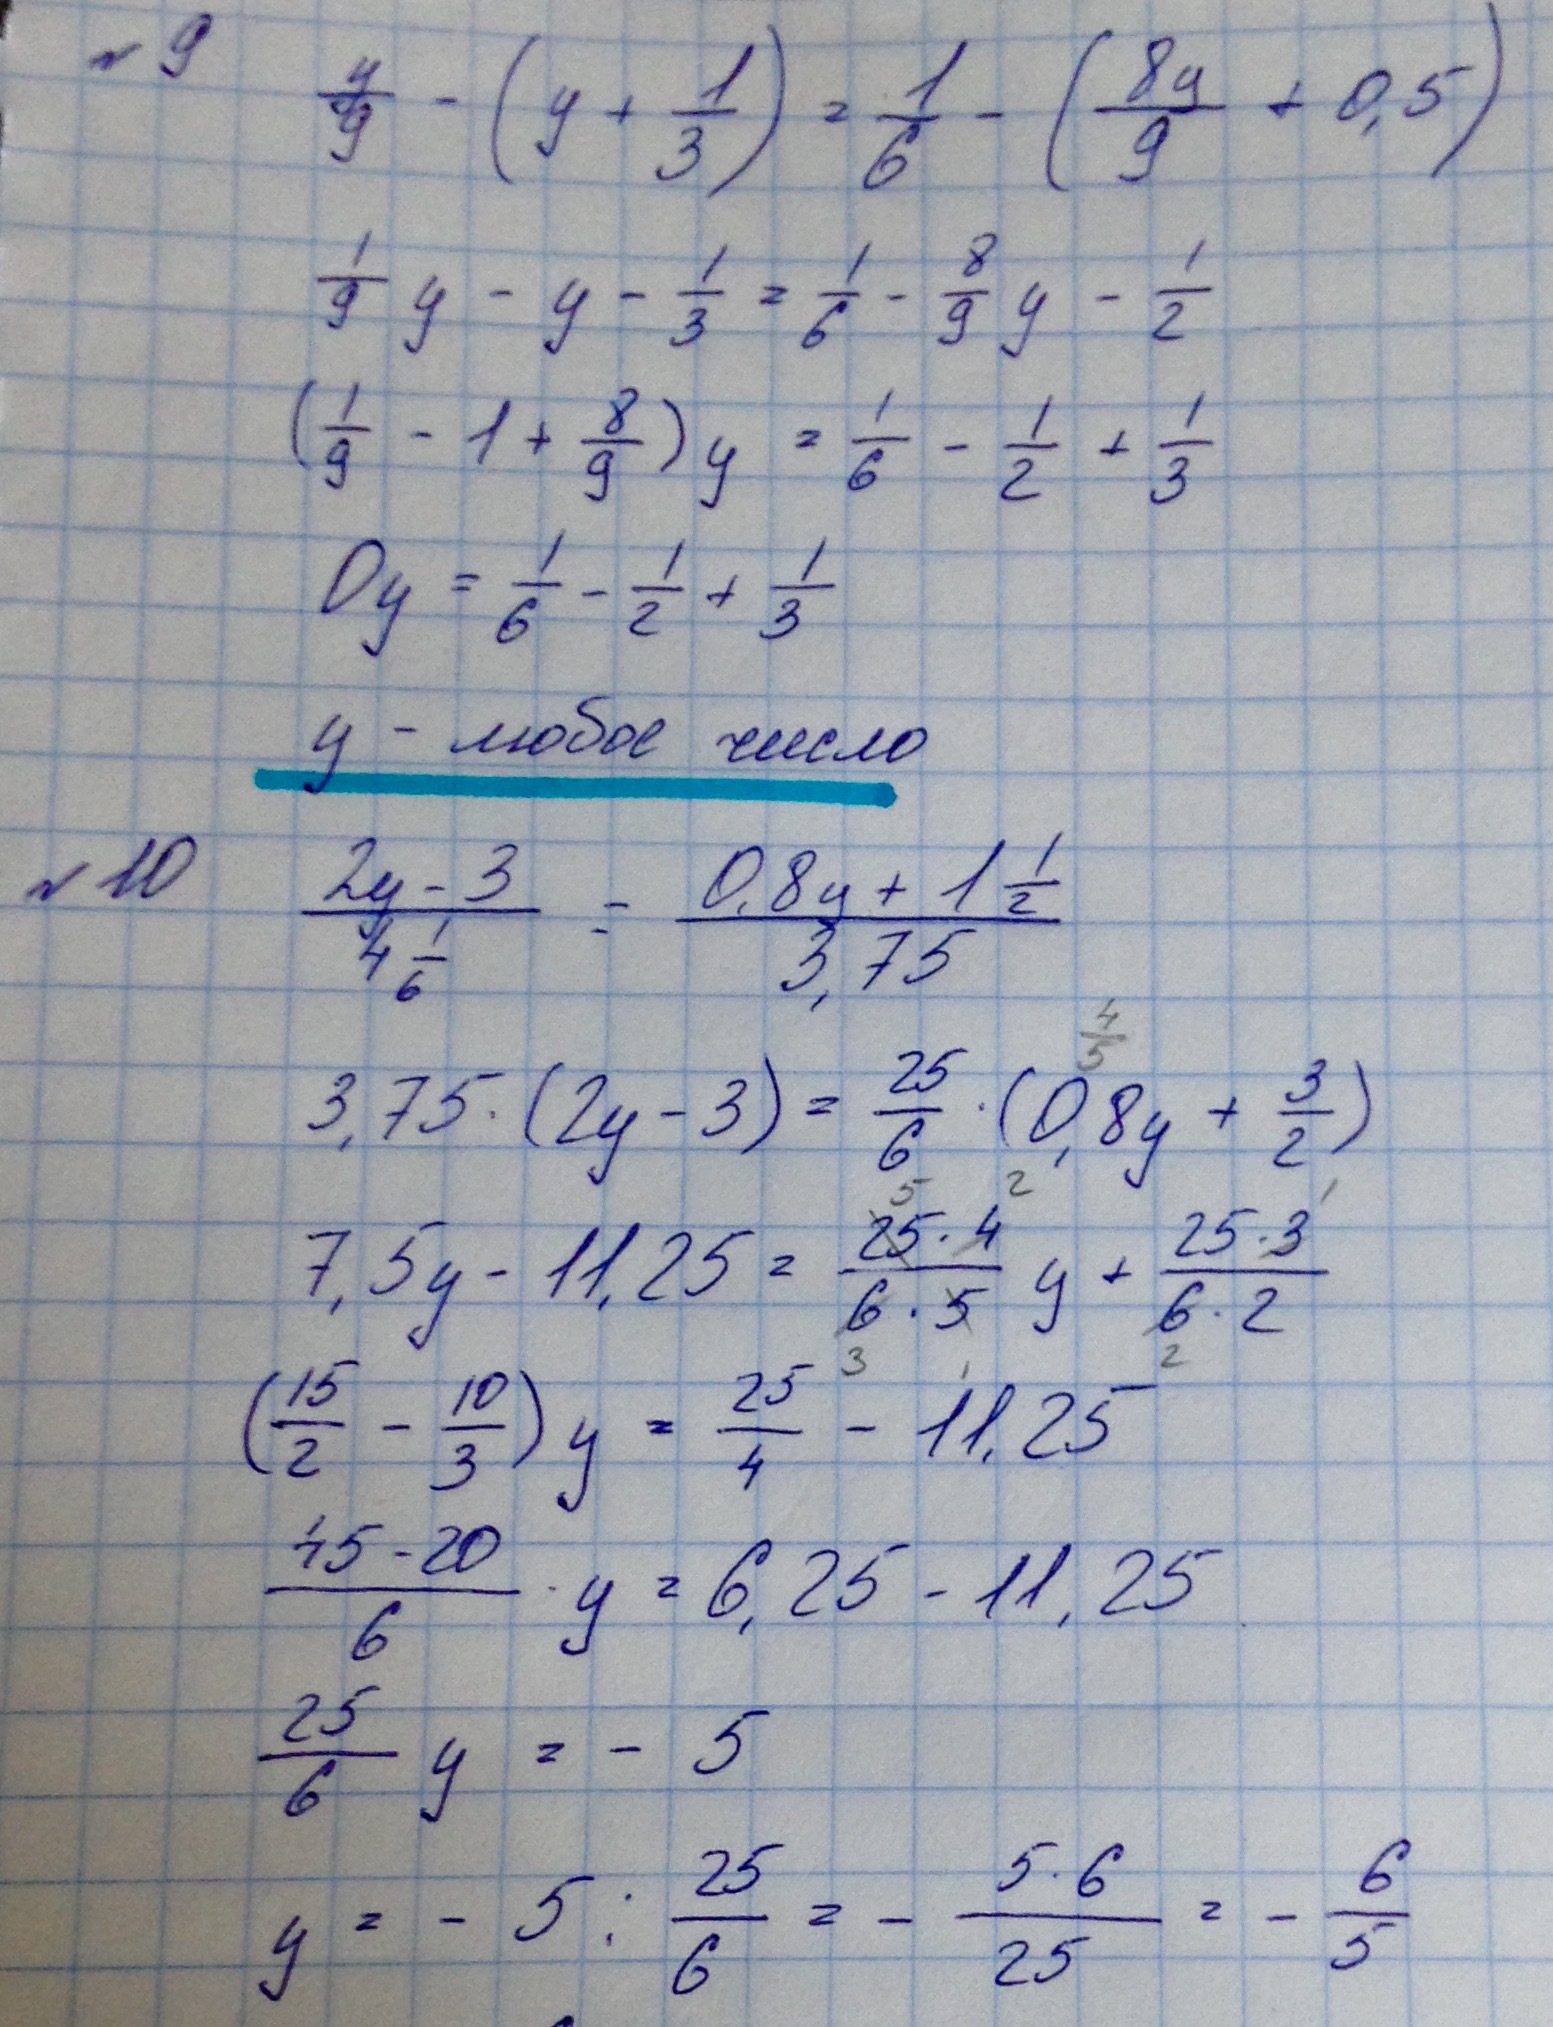 № 9 y/9 - (y + 1/3) = 1/6 - (8y/9 + 0,5)
1/9 y - y - 1/3 = 1/6 - 8/9 y - 1/2
(1/9 - 1 + 8/9) y = 1/6 - 1/2 + 1/3
0y = 1/6 - 1/2 + 1/3
y - любое число
№ 10 (2y - 3)/(4 1/6) = (0,8y + 1 1/2)/(3,75)
4/5
3,75 · (2y - 3) = 25/6 · (0,8y + 3/2)
5 2 1
7,5y - 11,25 = (25 · 4)/(6 · 5) y + (25 · 3)/(6 · 2)
3 1 2
(15/2 - 10/3) y = 25/4 - 11,25
(45 - 20)/6 · y = 6,25 - 11,25
25/6 y = - 5
y = - 5 : 25/6 = - (5 · 6)/25 = - 6/5